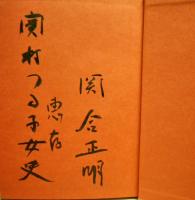 関村つる子女史
恵存
関合正明